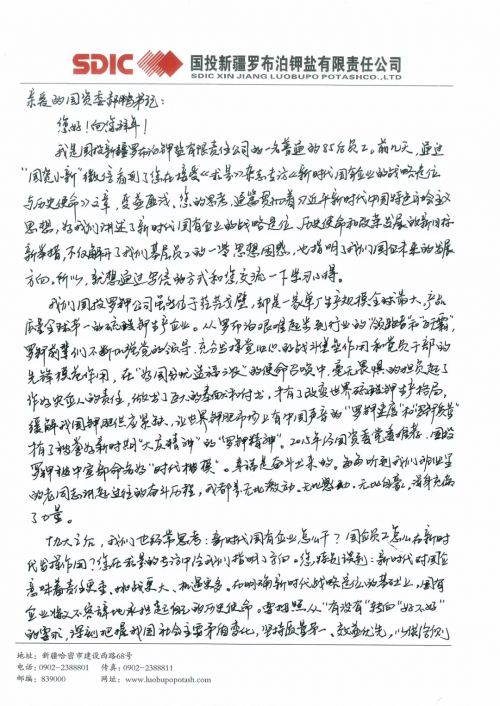 SDIC 国投新疆罗布泊钾盐有限责任公司
SDIC XIN JIANG LUOBUPO POTASHCO.,LTD
亲爱的国资委郝鹏书记：
您好！向您拜年！
我是国投新疆罗布泊钾盐有限责任公司的一名普通的85后员工。前几天，通过
"国资小新"微信看到了您在接受《求是》杂志专访《新时代国有企业的战略定位
与历史使命》文章，受益匪浅，您的思考，通篇贯彻着习近平新时代中国特色社会主义
思想，为我们讲述了新时代国有企业的战略定位、历史使命和改革发展的新目标
新举措，不仅解开了我们基层员工的一些思想困惑，也指明了我们国企未来的发展
方向。所以，就想通过写信的方式和您交流一下学习心得。
我们国投罗钾公司虽然位于茫茫戈壁，却是一家单厂生产规模全球最大、产品
质量全球第一的硫酸钾生产企业。从罗布泊艰难起步到行业的"领跑者"和
罗钾前辈们不断加强党的领导，充分发挥党组织的战斗堡垒作用和党员干部的
先锋模范作用，在"为国分忧"的使命召唤中，毫无畏惧的担负起了
作为央企人的责任，做出了巨大的奉献和付出，才有了改变世界硫酸钾生产格局，
缓解我国钾肥供应紧缺，让世界钾肥市场上有中国声音的"罗钾速度"和
才有了被誉为新时期"大庆精神"的"罗钾精神"。2013年经国资委党委推荐，国投
罗钾被中宣部命名为"时代楷模"。幸福是奋斗出来的。每每听到我们
的老同志讲起过往的奋斗历程，我都会无比激动、无比感动、无比自豪，浑身充满
了力量。
十九大之后，我们也经常思考：新时代国有企业怎么干？国企员工怎么在新时
代发挥作用？您在求是的专访中给我们指明了方向。您特别谈到：新时代对国企
意味着责任更重、挑战更大、机遇更多。在明确新时代战略定位的基础上，国有
企业将义不容辞地承担起自己的历史使命。要按照从"有没有"转向"好不好"
的要求，深刻把握我国社会主要矛盾变化，坚持质量第一、效益优先，以供给侧
地址：新疆哈密市建设西路68号
电话：0902-2388801 传真：0902-2388811
邮编：839000 网址：www.luobupopotash.com